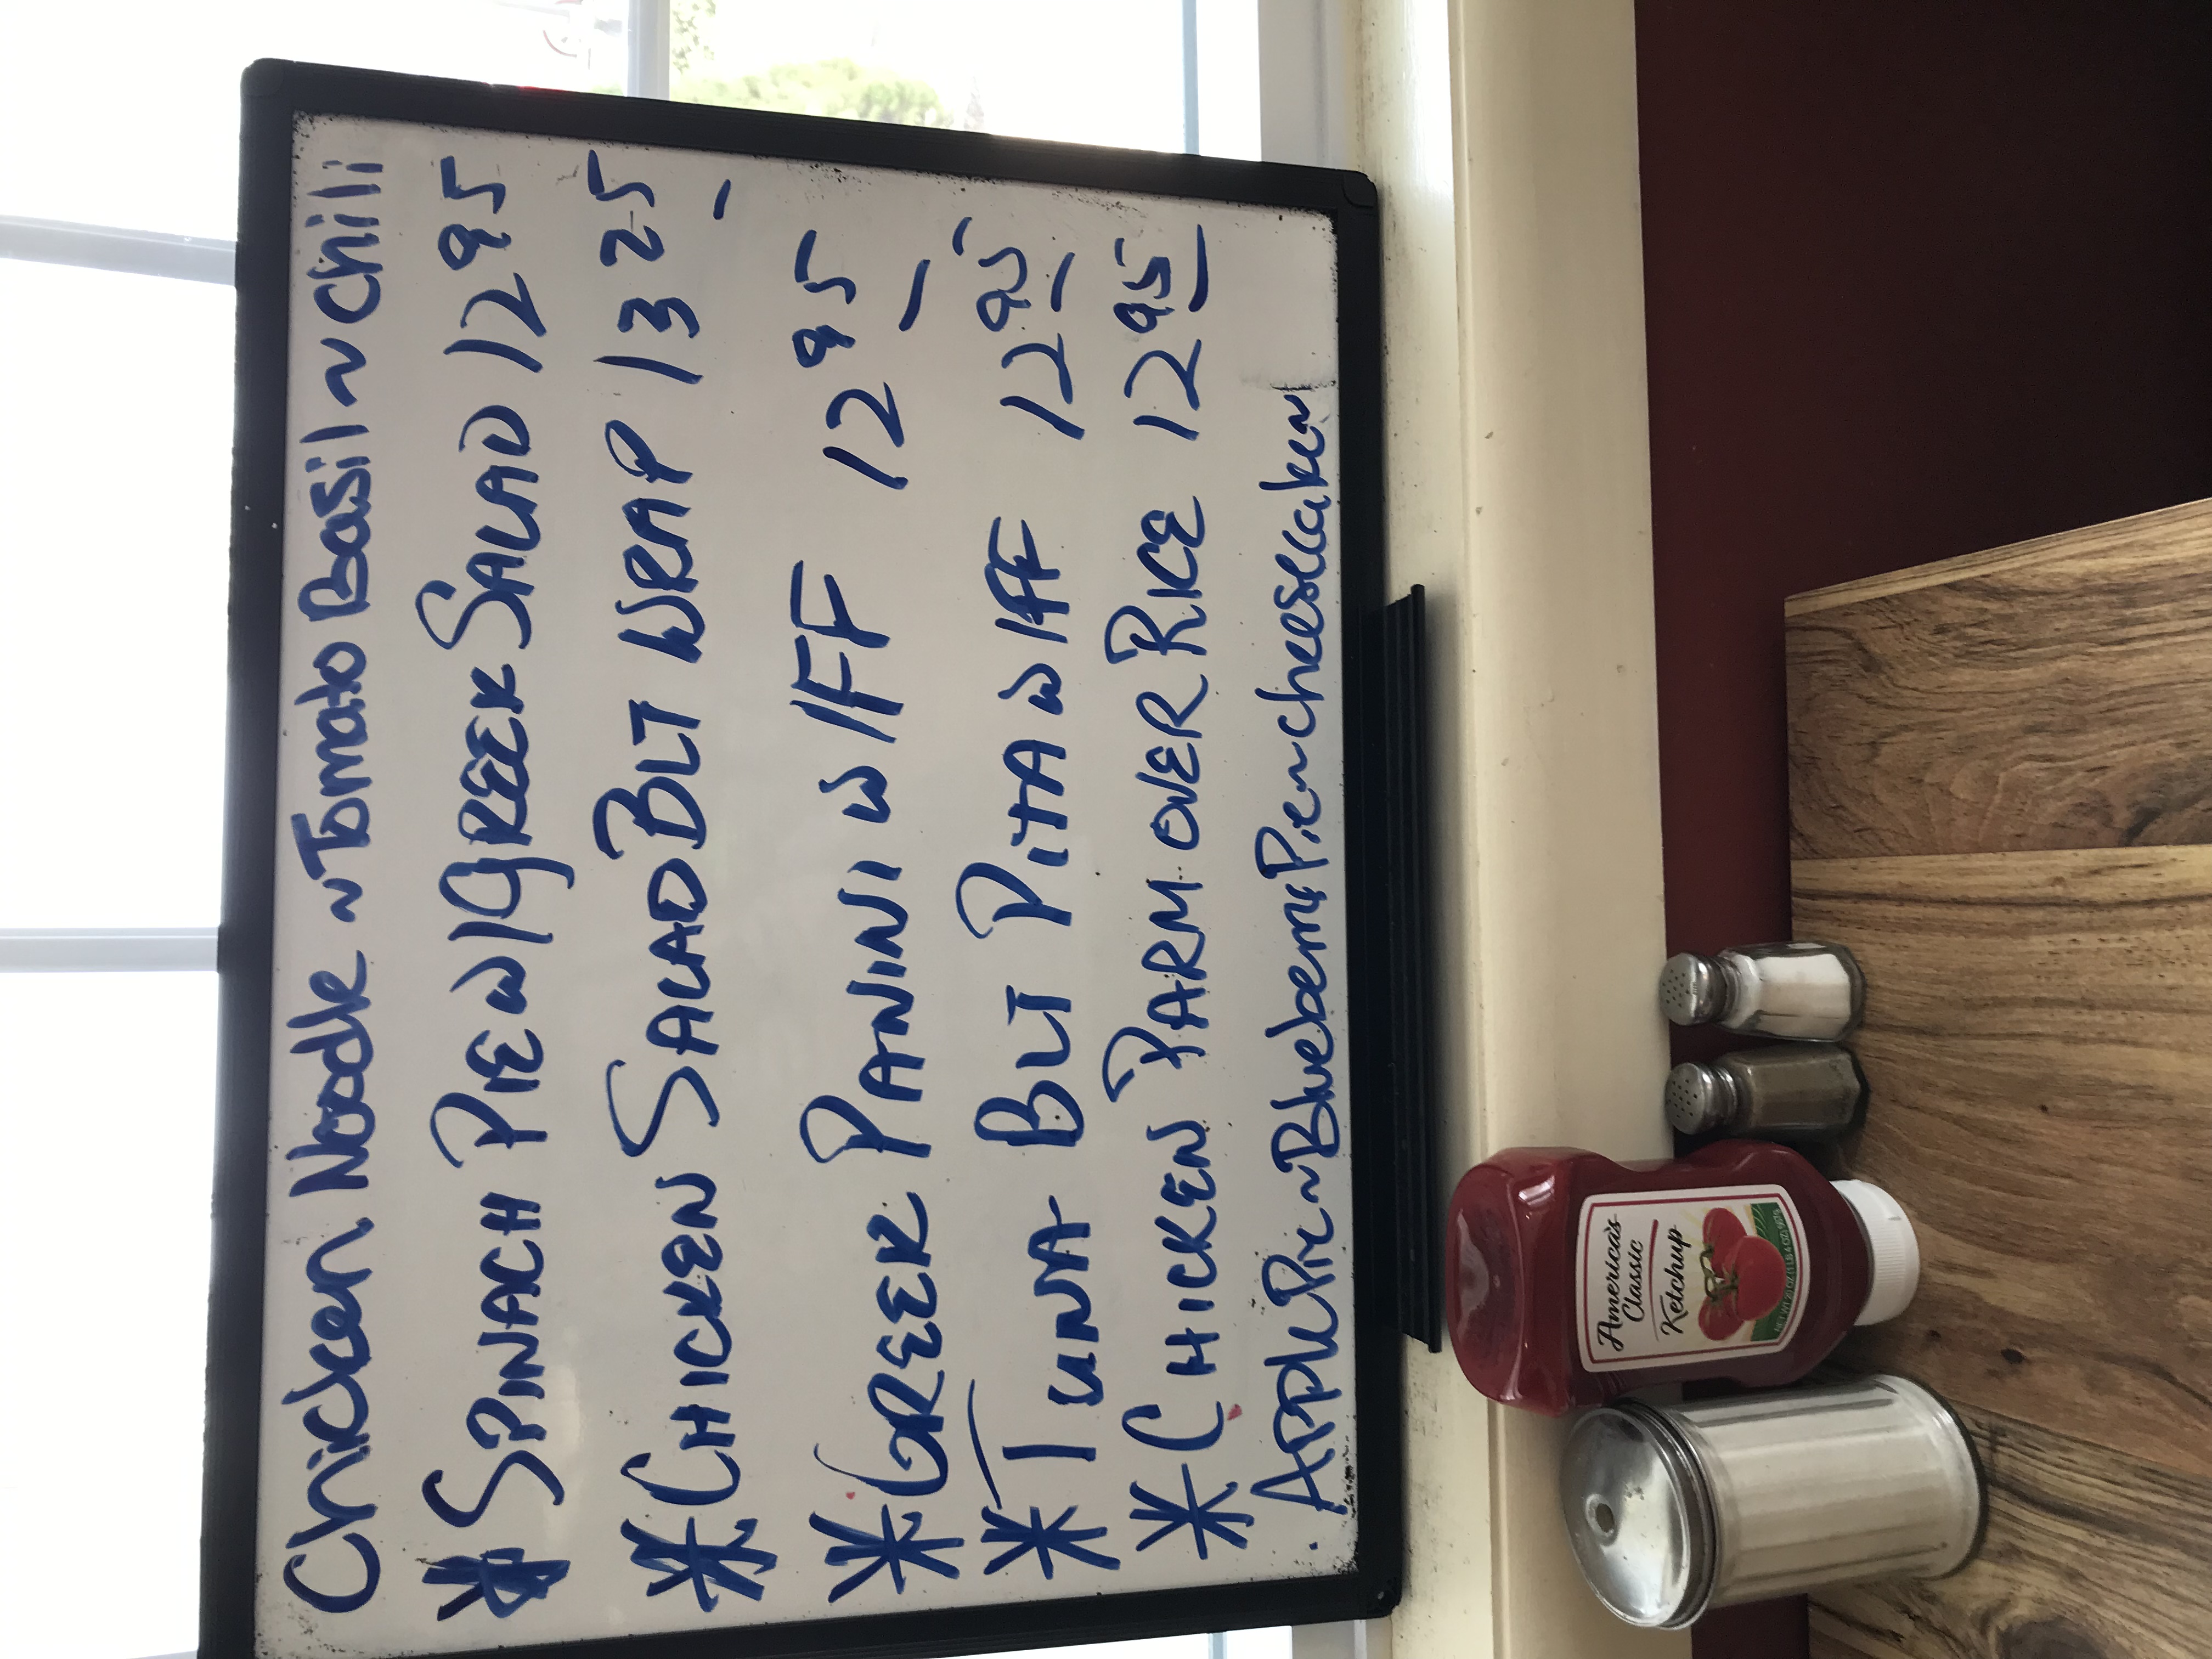 Chicken Noodle ~ Tomato Basil ~ Chili
* SPINACH PIE W/GREEK SALAD 12 95
* CHICKEN SALAD BLT WRAP 13 25
* GREEK PANINI W/FF 12 95
* TUNA BLT PITA W/FF 12 95
* CHICKEN PARM OVER RICE 12 95
Apple Pie ~ Blueberry Pie ~ cheesecake ~
America's
Classic
Ketchup